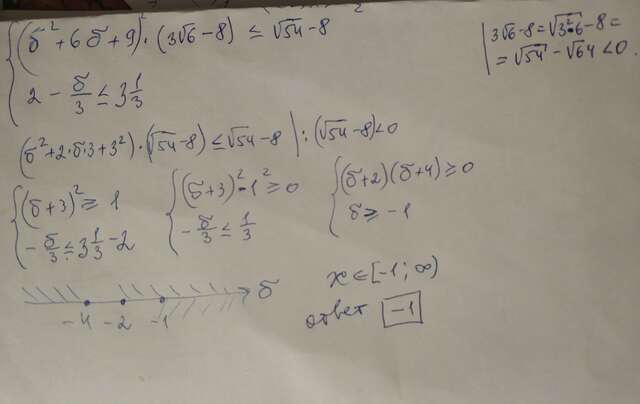 (б² + 6б + 9)·(3√6 − 8) ≤ √54 − 8
2 − б/3 ≤ 3 1/3
3√6 − 8 = √3²·6 − 8 =
= √54 − √64 < 0.
(б² + 2·б·3 + 3²)·(√54 − 8) ≤ √54 − 8 | : (√54 − 8) < 0
(б + 3)² ≥ 1
− б/3 ≤ 3 1/3 − 2
(б + 3)² − 1² ≥ 0
− б/3 ≤ 1/3
(б + 2)(б + 4) ≥ 0
б ≥ −1
б
−4 −2 −1
x ∈ [−1; ∞)
ответ −1